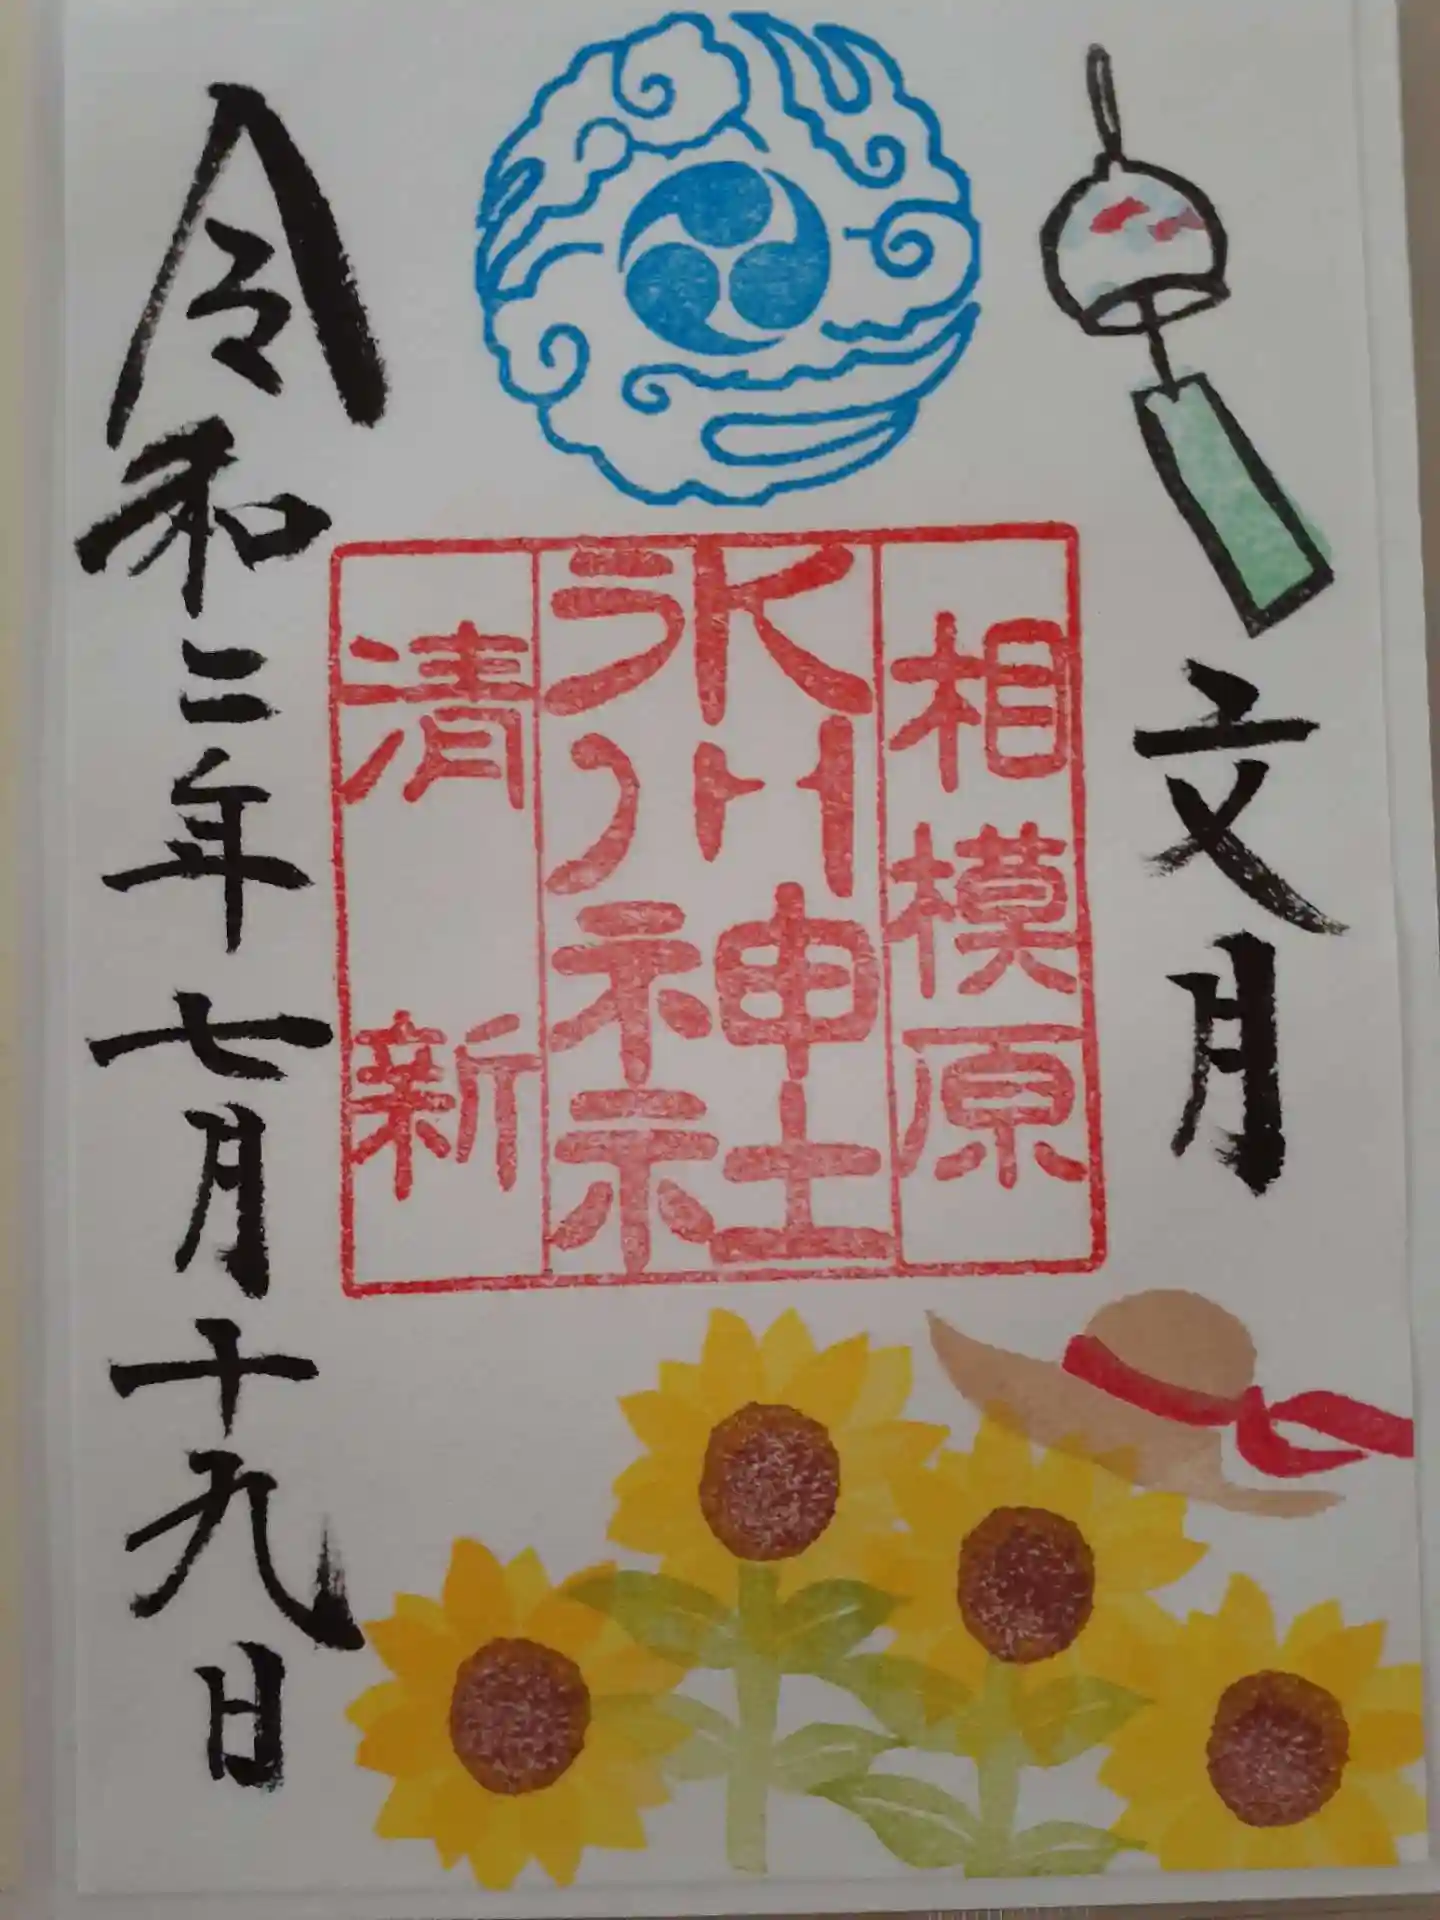 文月
相模原
氷川神社
清新
令和三年七月十九日